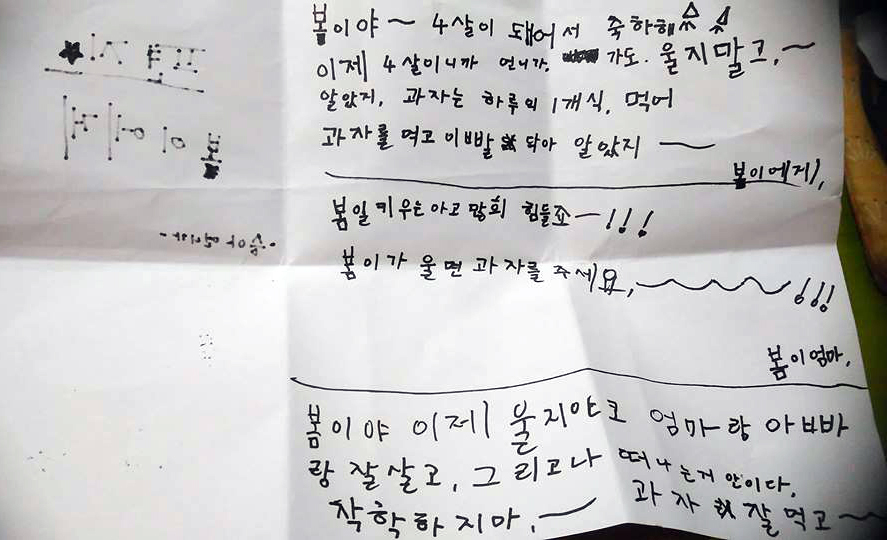 봄이야~ 4살이 돼어서 축하해
이제 4살이니까 언니가, 가도. 울지말고,~
알았지, 과자는 하루의 1개식, 먹어
과자를 먹고 이빨 닥아 알았지 ―
봄이에게,
봄일 키우는아고 많회 힘들죠―!!!
봄이가 울면 과자를 주세요,~!!!
봄이엄마,
봄이야 이제 울지야코 엄마랑 아빠
랑 잘살고, 그리고나 떠나는거 안이다,
착학하지마,~ 과자 잘먹고~